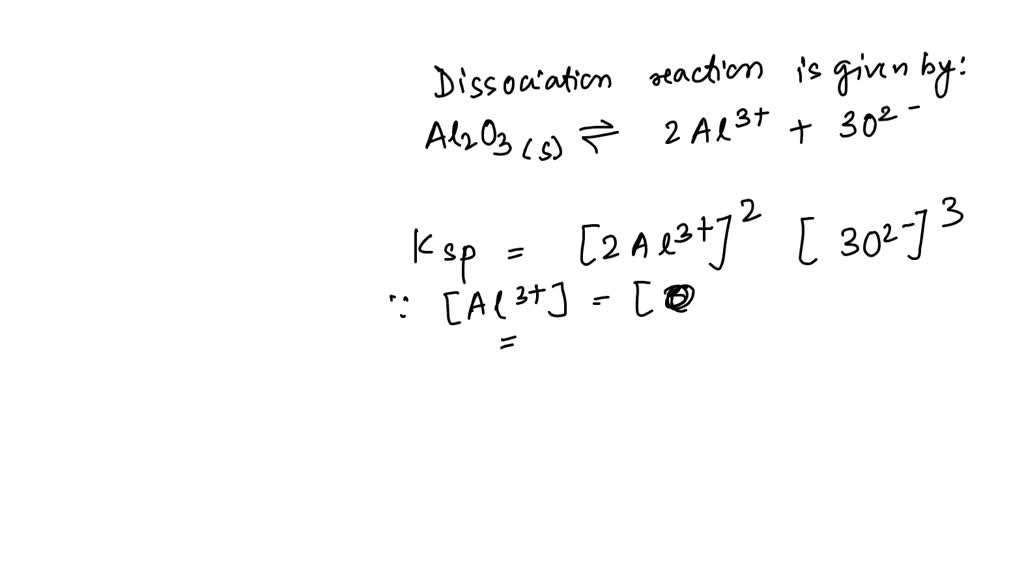 Dissociation reaction is given by:
Al₂O₃(s) ⇌ 2Al³⁺ + 3O²⁻
Ksp = [2Al³⁺]² [3O²⁻]³
∵ [Al³⁺] = [
=